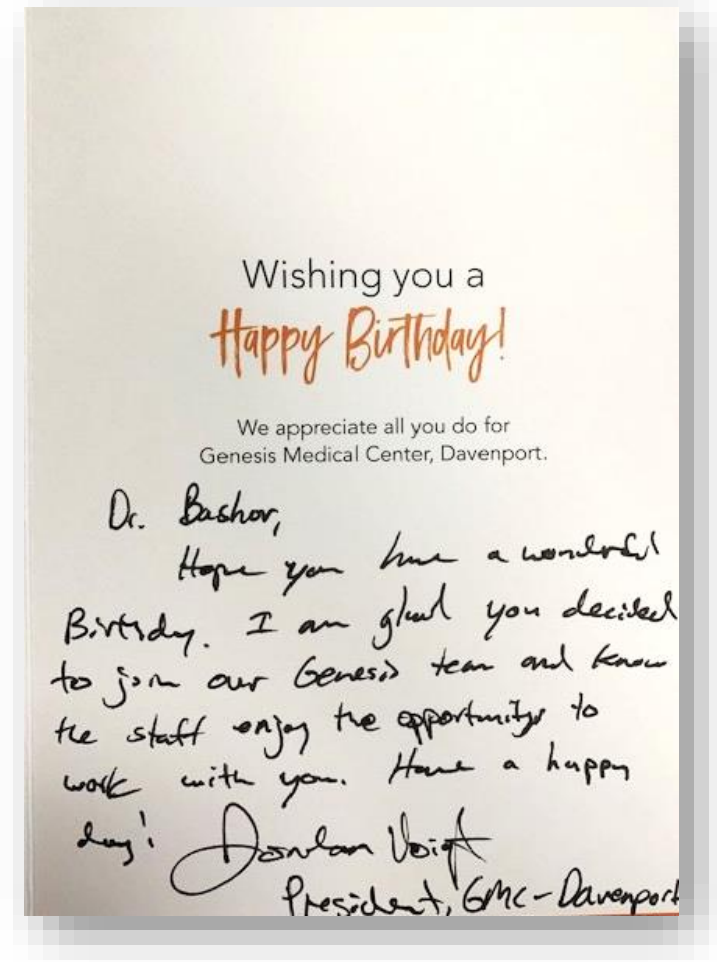 Wishing you a
Happy Birthday!
We appreciate all you do for
Genesis Medical Center, Davenport.
Dr. Bashor,
Hope you have a wonderful
Birthday. I am glad you decided
to join our Genesis team and know
the staff enjoy the opportunity to
work with you. Have a happy
day! Voigt
President, GMC-Davenport